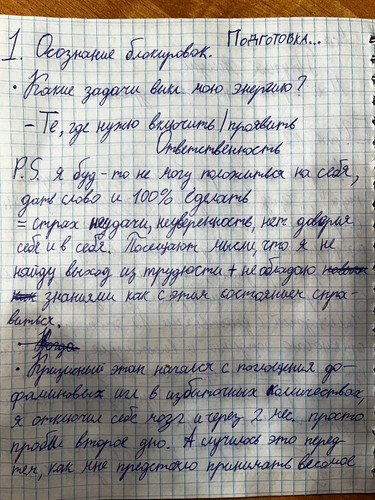 Подготовка...
1. Осознание блокировок.
• Какие задачи выкл. мою энергию?
– Те, где нужно включить/проявить
Ответственность
P.S. я буд-то не могу положиться на себя,
дать слово и 100% сделать
= страх неудачи, неуверенность, нет доверия
себе и в себя. Посещают мысли, что я не
найду выход из трудности + не обладаю
знаниями как с этим состоянием спра-
виться.
• Кризисный этап начался с поглощения до-
фаминовых игл в избыточных количествах,
я отключил себе мозг и через 2 мес. просто
пробил второе дно. А случилось это перед
тем, как мне предстояло принимать весомое